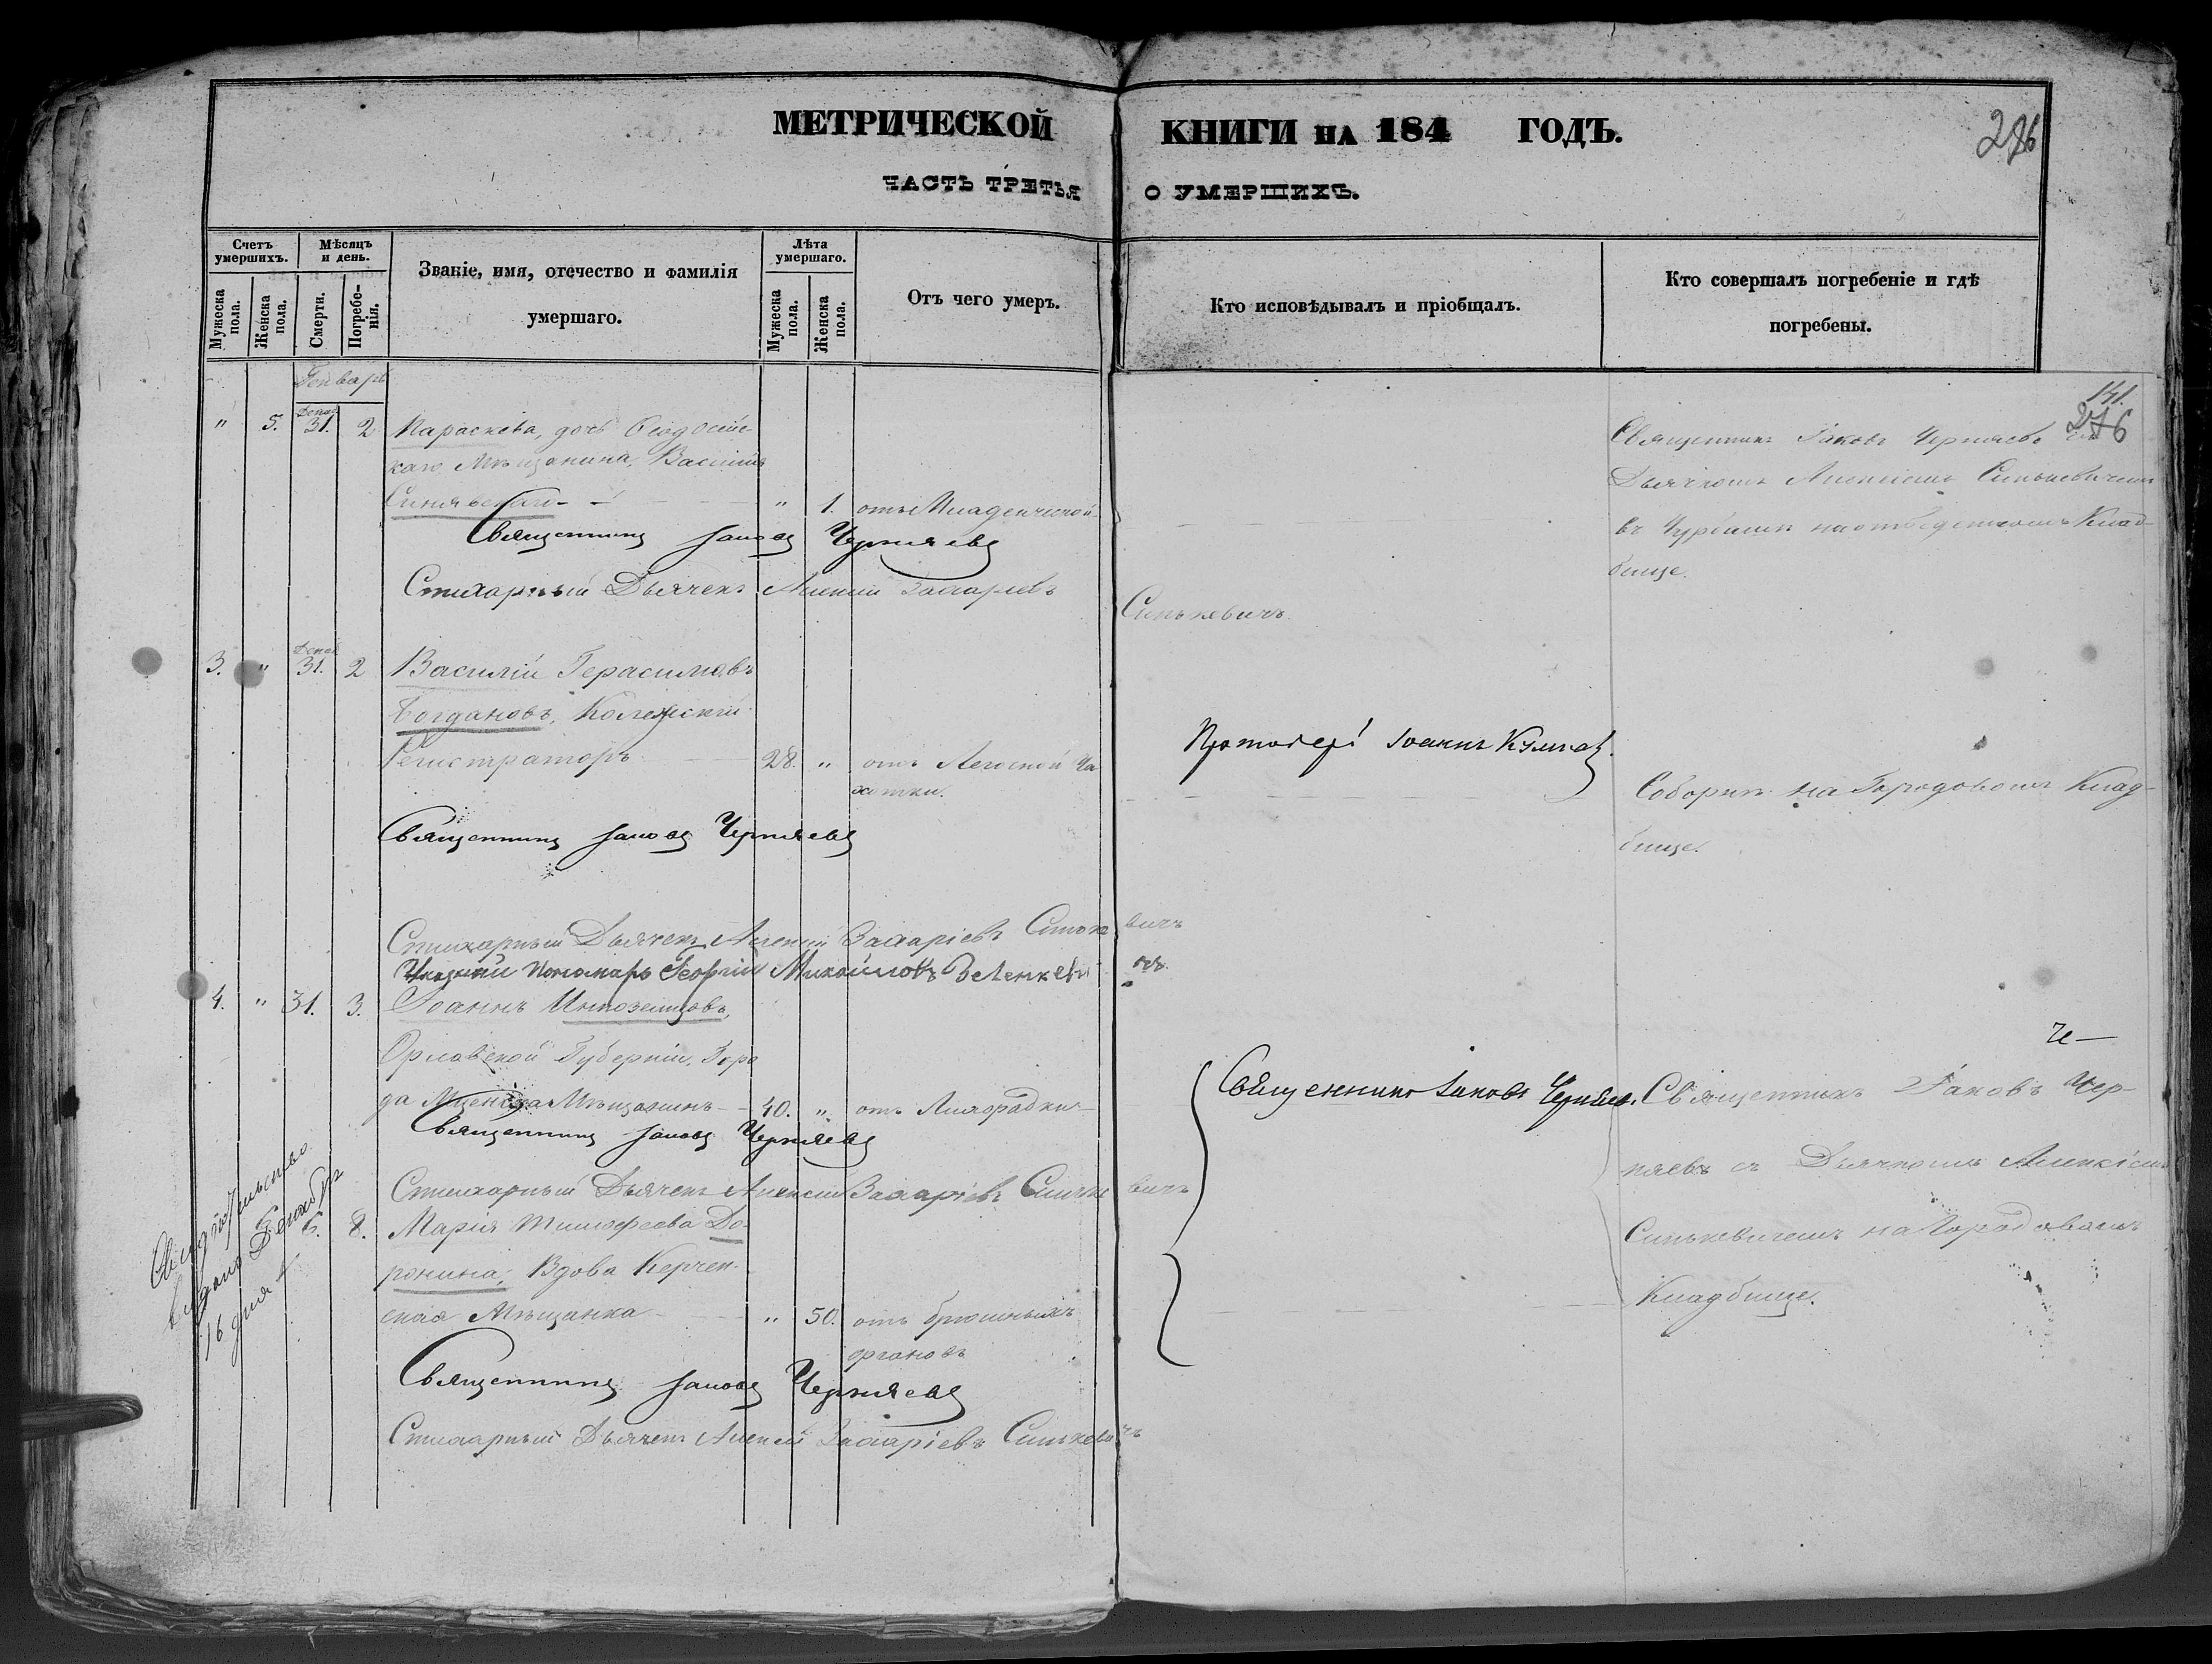 МЕТРИЧЕСКОЙ КНИГИ НА 184 ГОДЪ.
276
ЧАСТЬ ТРЕТЬЯ О УМЕРШИХЪ.
Счетъ умершихъ.
Мужеска пола.
Женска пола.
Мѣсяцъ и день.
Смерти.
Погребенія.
Званіе, имя, отечество и фамилія умершаго.
Лѣта умершаго.
Мужеска пола.
Женска пола.
Отъ чего умеръ.
Кто исповѣдывалъ и пріобщалъ.
Кто совершалъ погребеніе и гдѣ погребены.
Генварь
141.
276
" 5. Декаб 31. 2 Параскева, дочь Ѳеодосій-
каго Мѣщанина, Василія
Синявскаго " 1. отъ Младенческой
Священникъ Іаковъ Черняевъ
Дьячкомъ Алексіемъ Синькевичемъ
въ на отведенномъ Клад-
бище.
Священникъ Іаковъ Черняевъ
Стихарный Дьячекъ Алексій Захаріевъ Синькевичъ
3. " Декаб 31. 2 Василій Герасимовъ
Богдановъ, Колежскій
Регистраторъ 28. " отъ Легочной Ча-
хотки.
Протоіерей Іоаннъ
Соборнѣ на Городовомъ Клад-
бище.
Священникъ Іаковъ Черняевъ
Стихарный Дьячекъ Алексій Захаріевъ Синькевичъ
Пономарь Георгій Михайловъ Зеленкевичъ
4. " 31. 3. Іоаннъ Иноземцовъ,
Орловской Губерніи, Горо
да Мценска Мѣщанинъ 40. " отъ Лихорадки
Священникъ Іаковъ Черняевъ.
Священникъ Іаковъ Чер-
няевъ съ Дьячкомъ Алексіемъ
Синькевичемъ на Городовомъ
Кладбище.
Священникъ Іаковъ Черняевъ
Стихарный Дьячекъ Алексій Захаріевъ Синькевичъ
Свидѣтельство
выдано Генваря
16 дня
6. 8. Марія Тимофеева До-
ронина, Вдова Керчен-
ская Мѣщанка " 50. отъ брюшныхъ
органовъ
Священникъ Іаковъ Черняевъ
Стихарный Дьячекъ Алексій Захаріевъ Синькевичъ